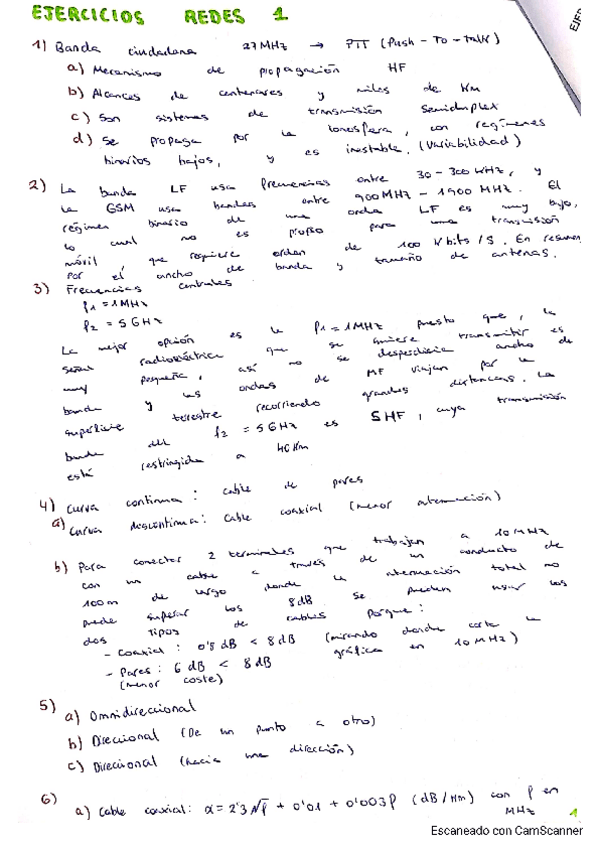 EJERCICIOS REDES 1
EJER
1) Banda ciudadana 27MHz → PTT (Push-To-talk)
a) Mecanismo de propagación HF
b) Alcances de centenares y miles de Km
c) Son sistemas de transmisión semiduplex
d) Se propaga por la ionosfera, con regímenes
binarios bajos, y es inestable. (Variabilidad)
2) La banda LF usa frecuencias entre 30-300 kHz, y
la GSM usa bandas entre 900 MHz - 1900 MHz. El
régimen binario de una onda LF es muy bajo,
lo cual no es propio para una transmisión
móvil, que requiere orden de 100 kbits/s. En resumen
por el ancho de banda y tamaño de antenas.
3) Frecuencias centrales
f1 = 1MHz
f2 = 5GHz
La mejor opción es la f1 = 1MHz puesto que, la
señal radioeléctrica que se quiere transmitir es
muy pequeña, así no se desperdicia ancho de
banda y las ondas de MF viajan por la
superficie terrestre recorriendo grandes distancias. La
banda del f2 = 5GHz es SHF, cuya transmisión
está restringida a 40Km
4) Curva continua: cable de pares
a) Curva descontinua: cable coaxial (menor atenuación)
b) Para conectar 2 terminales que trabajan a 10 MHz
con un cable a través de un conducto de
100m de largo, donde la atenuación total no
puede superar los 8dB. Se pueden usar los
dos tipos de cables porque:
- Coaxial: 0'8 dB < 8 dB (mirando donde corta la
gráfica en 10 MHz)
- Pares: 6 dB < 8dB
(menor coste)
5) a) Omnidireccional
b) Direccional (De un punto a otro)
c) Direccional (hacia una dirección)
6) a) Cable coaxial: α = 2'3√f + 0'01 + 0'003f (dB/Km) con f en
MHz
1
Escaneado con CamScanner